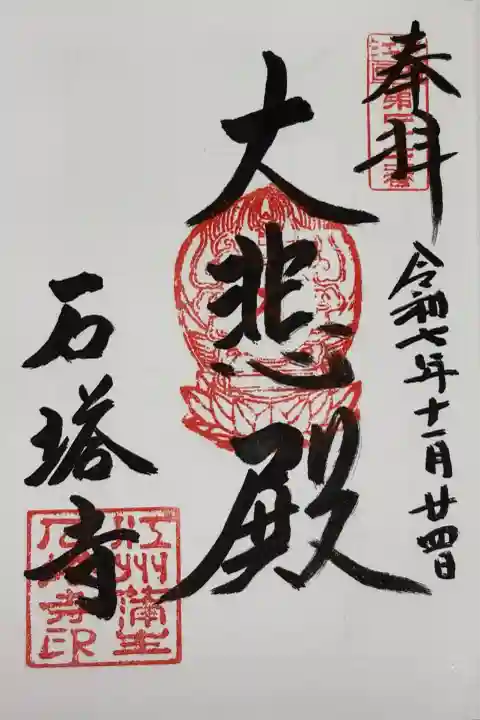 奉拝
令和七年十一月廿四日
大悲殿
石塔寺
江州蒲生
石塔寺印